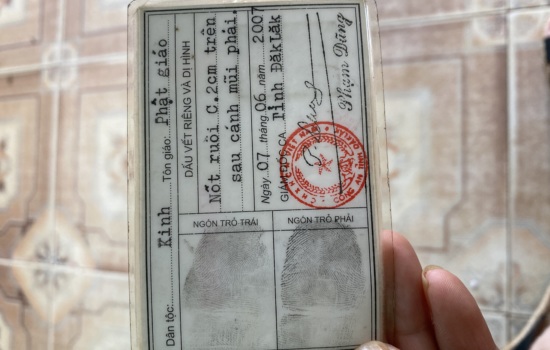 Dân tộc: Kinh Tôn giáo: Phật giáo
DẤU VẾT RIÊNG VÀ DỊ HÌNH
NGÓN TRỎ TRÁI
Nốt ruồi C.2cm trên
sau cánh mũi phải.
Ngày 07 tháng 06 năm 2007
GIÁM ĐỐC CA Tỉnh ĐăkLăk
NGÓN TRỎ PHẢI
CÔNG AN TỈNH ĐĂKLĂK
Phạm Dũng